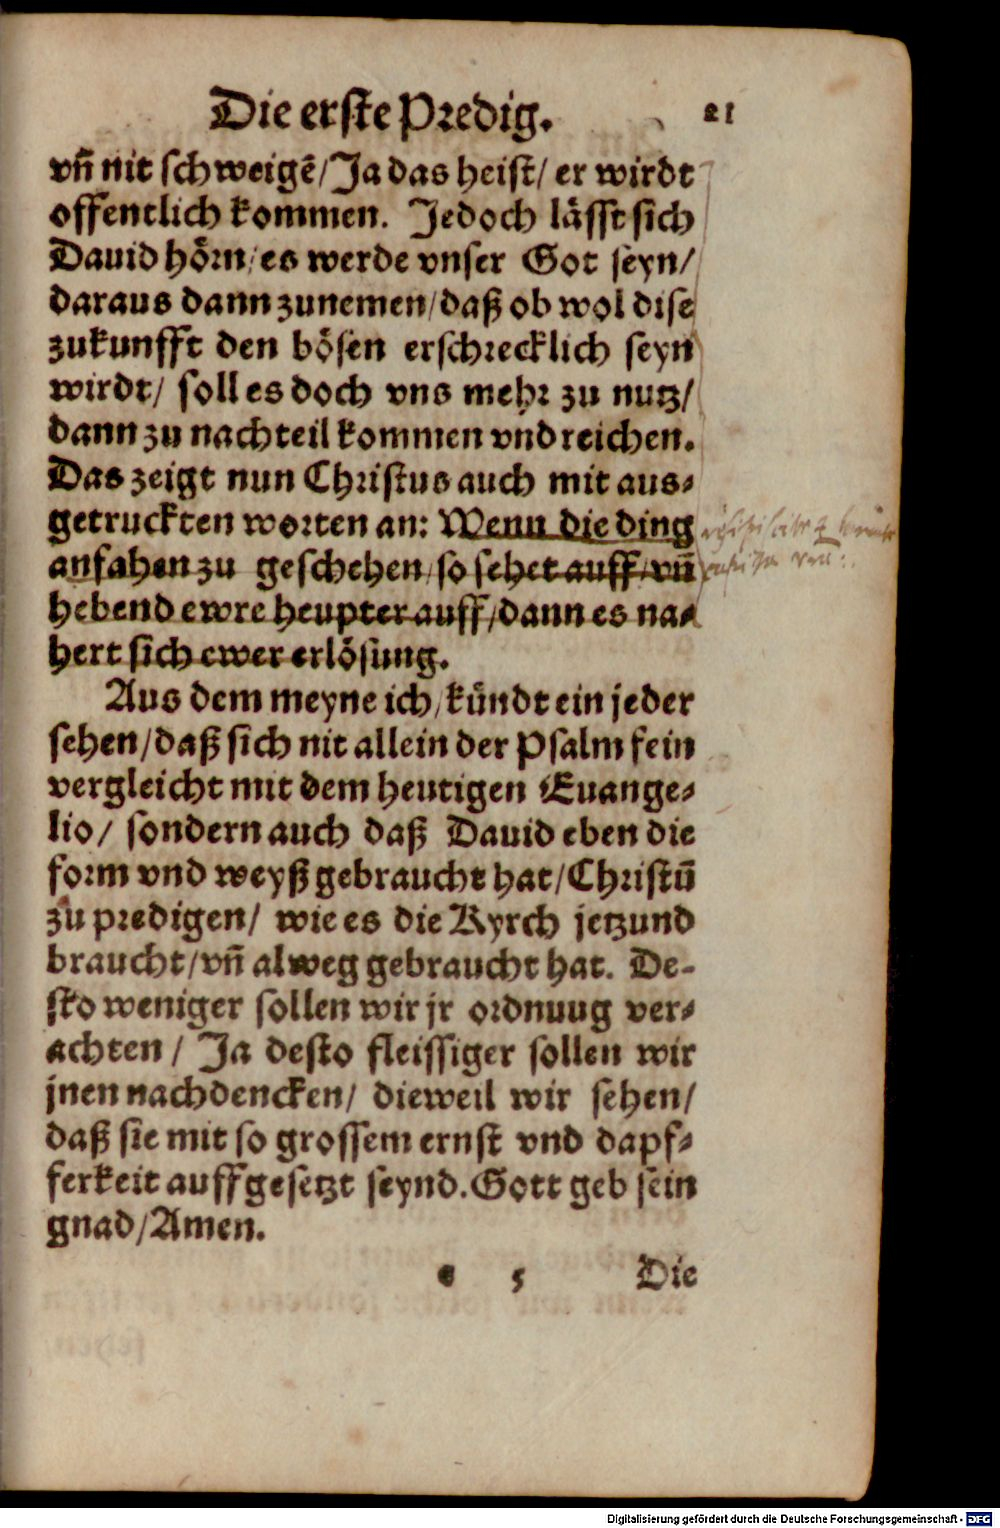 Die erste Predig. 21
vñ nit schweigẽ/Ja das heist/ er wirdt
offentlich kommen. Jedoch lässt sich
Dauid hörn/es werde vnser Got seyn/
daraus dann zunemen/daß ob wol dise
zukunfft den bösen erschrecklich seyn
wirdt/ soll es doch vns mehr zu nutz/
dann zu nachteil kommen vnd reichen.
Das zeigt nun Christus auch mit aus-
getruckten worten an: Wenn die ding
anfahen zu geschehen/so sehet auff/vñ
hebend ewre heupter auff/dann es na-
hert sich ewer erlösung.
Aus dem meyne ich/kündt ein jeder
sehen/daß sich nit allein der Psalm fein
vergleicht mit dem heutigen Euange-
lio/ sondern auch daß Dauid eben die
form vnd weyß gebraucht hat/Christũ
zu predigen/ wie es die Kyrch jetzund
braucht/vñ alweg gebraucht hat. De-
sto weniger sollen wir jr ordnuug ver-
achten/ Ja desto fleissiger sollen wir
jnen nachdencken/ dieweil wir sehen/
daß sie mit so grossem ernst vnd dapf-
ferkeit auffgesetzt seynd. Gott geb sein
gnad/Amen.
e 5 Die
Digitalisierung gefördert durch die Deutsche Forschungsgemeinschaft - DFG